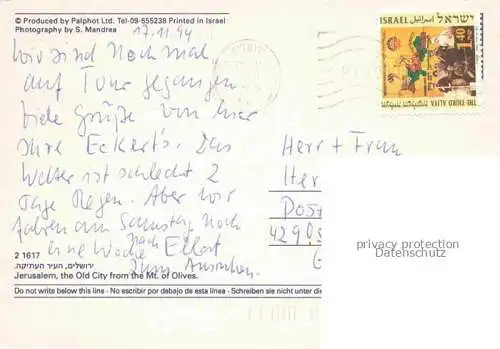 © Produced by Palphot Ltd. Tel-09-555238 Printed in Israel
Photography by S. Mandrea
17.11.94
Wir sind noch mal
auf Tour gegangen
viele Grüße von hier
Ihre Eckert's. Das
Wetter ist schlecht 2
Tage Regen. Aber wir
fahren am Samstag noch
eine Woche nach
zum Ausruhen.
2 1617
ירושלים, העיר העתיקה.
Jerusalem, the Old City from the Mt. of Olives.
Do not write below this line · No escribir por debajo de esta línea · Schreiben sie nicht unter di
ISRAEL اسرائيل ישראל
1.40
THE THIRD ALIYA
Herr + Frau
Her
Post
4290
privacy protection
Datenschutz